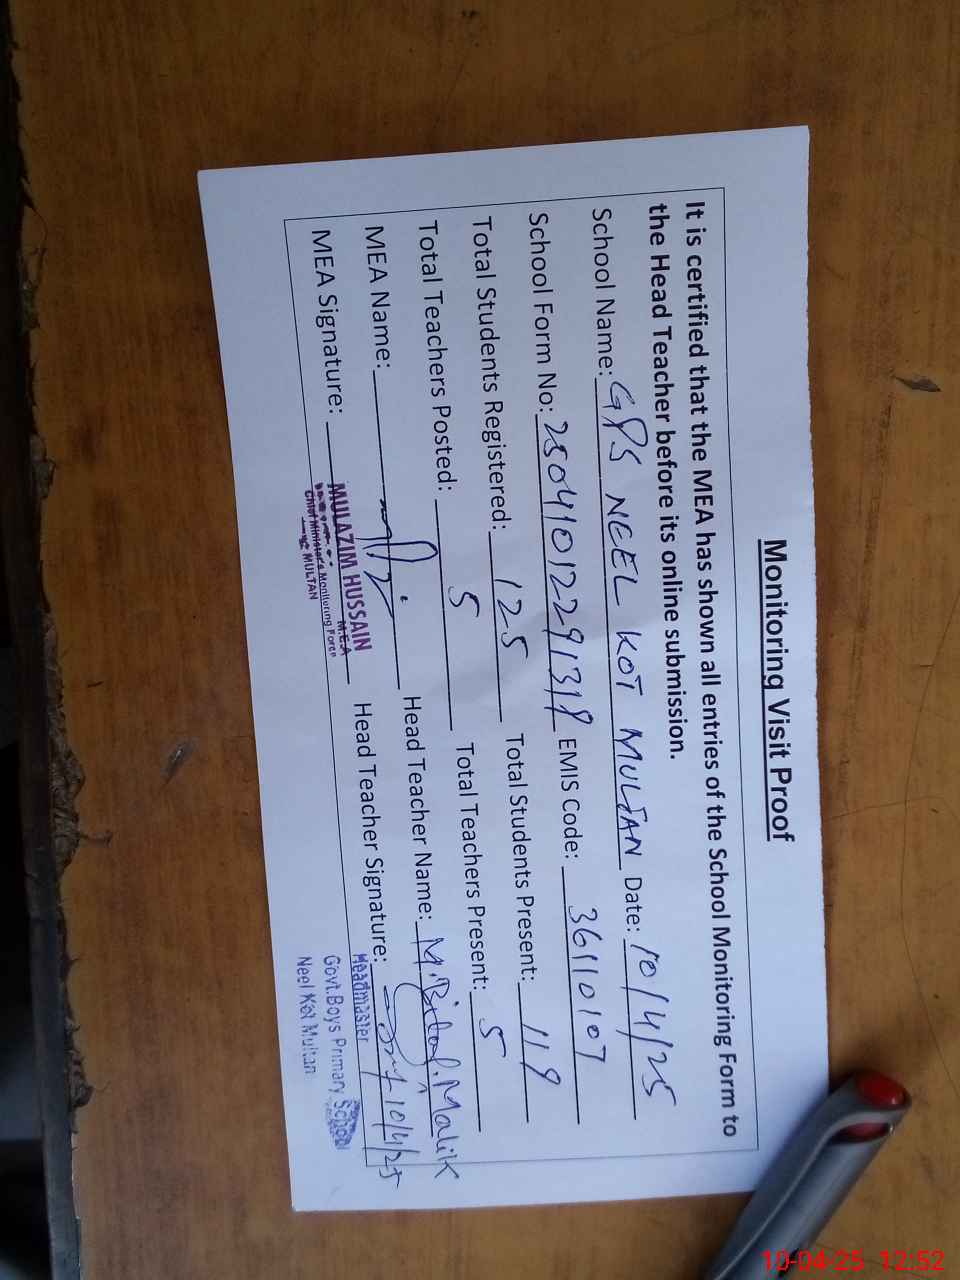 Monitoring Visit Proof
It is certified that the MEA has shown all entries of the School Monitoring Form to
the Head Teacher before its online submission.
School Name: GPS NEEL KOT MULTAN Date: 10/4/25
School Form No: 2504101229131 EMIS Code: 36110107
Total Students Registered: 125 Total Students Present: 119
Total Teachers Posted: 5 Total Teachers Present: 5
MEA Name: Head Teacher Name: M. Bilal Malik
MEA Signature: Head Teacher Signature: 10/4/25
MULAZIM HUSSAIN
M.E.A
Chief Minister's Monitoring Force
MULTAN
Headmaster
Govt. Boys Primary School
Neel Kot Multan
10-04-25 12:52